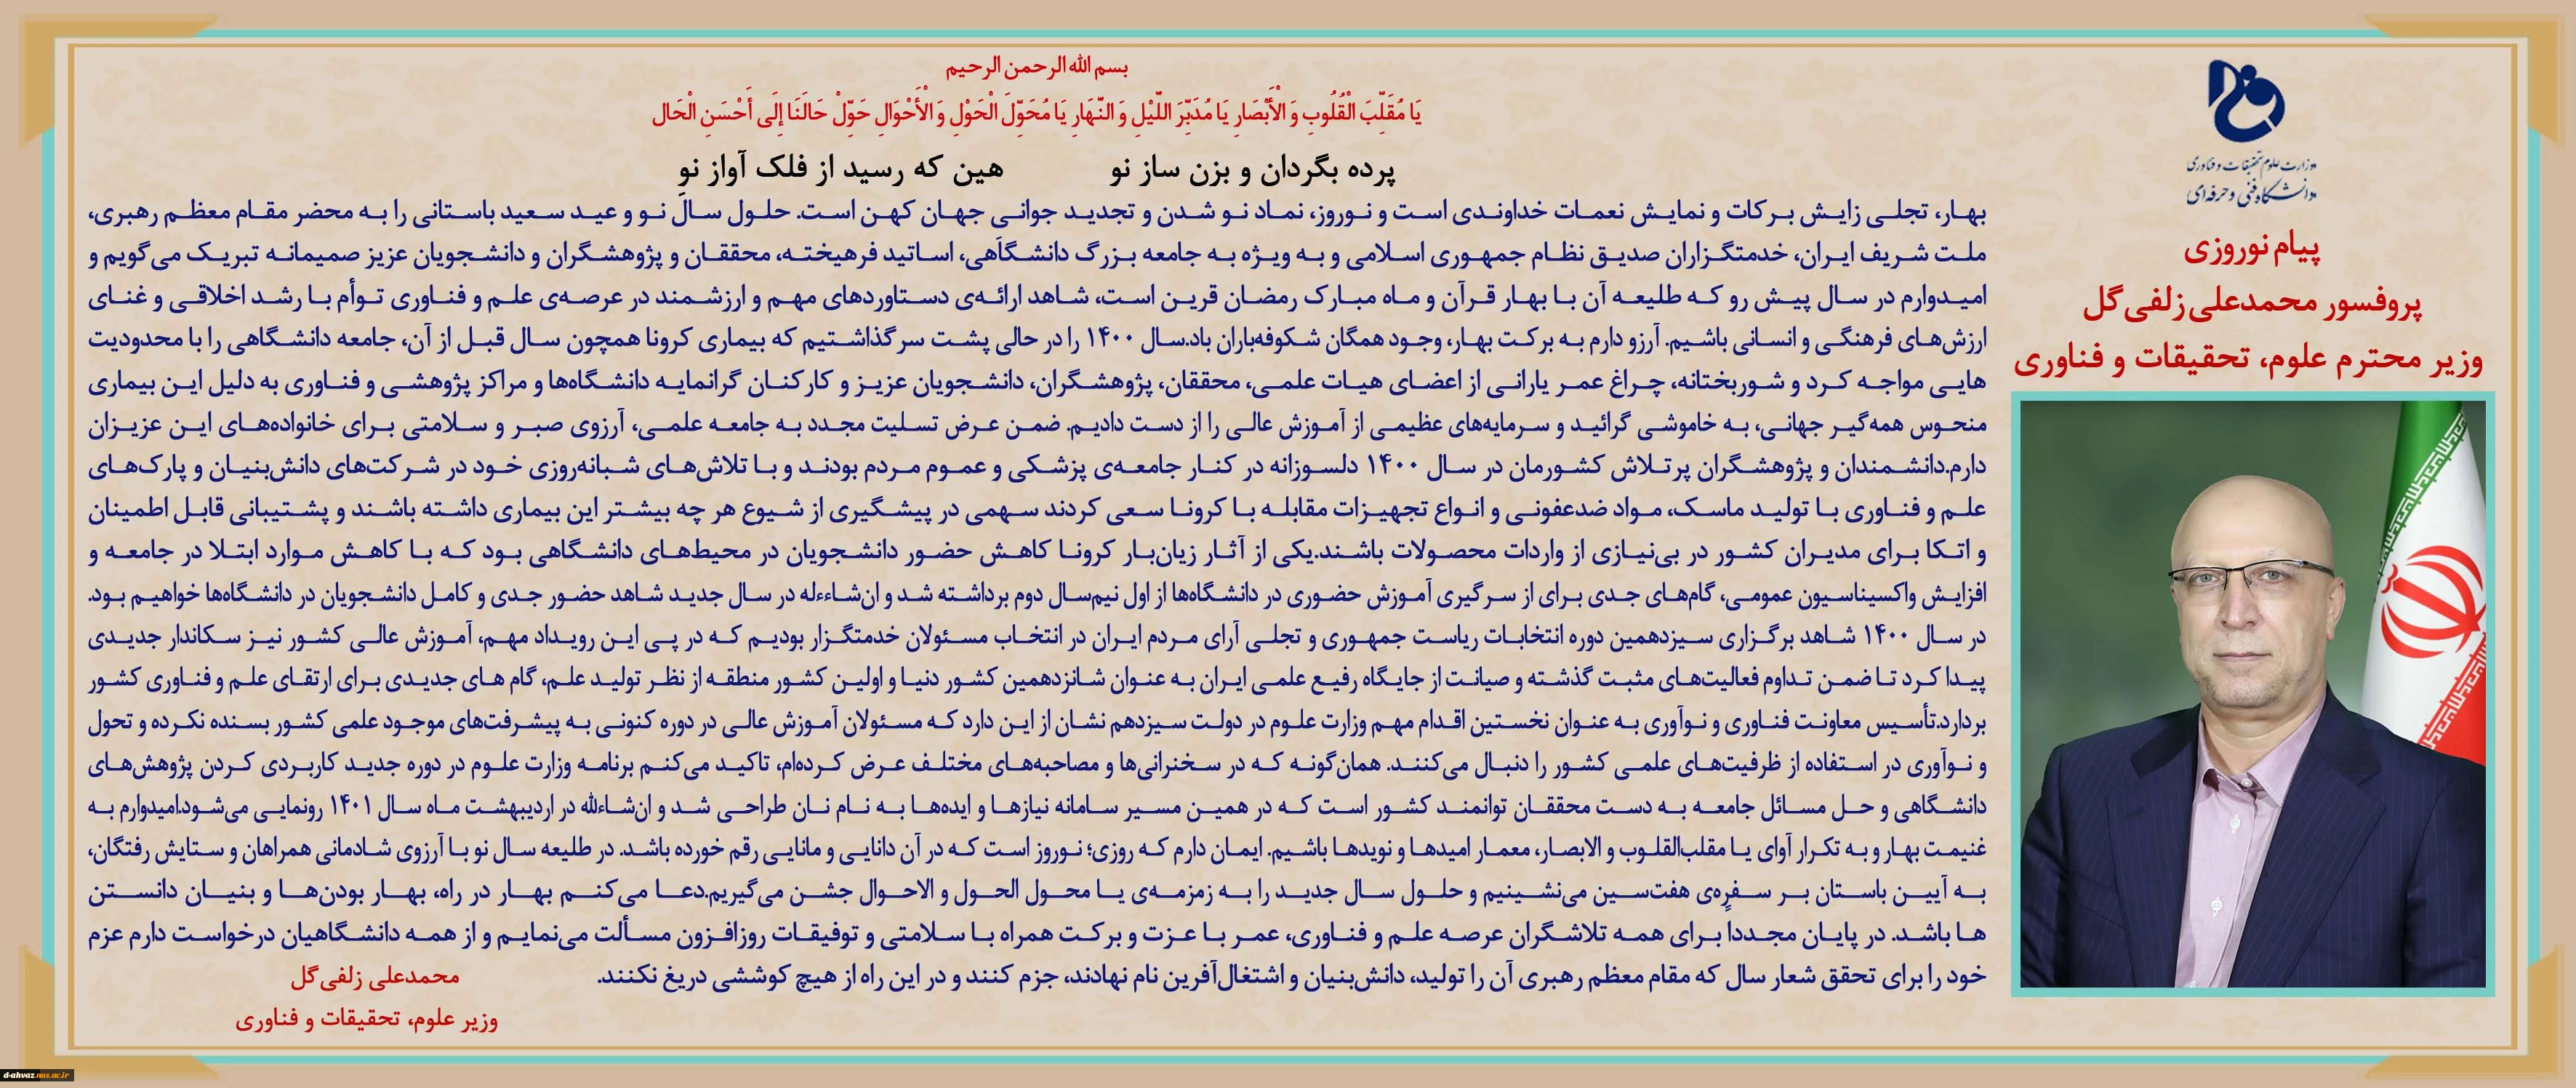 بسم الله الرحمن الرحیم
یَا مُقَلِّبَ الْقُلُوبِ وَ الْأَبْصَارِ یَا مُدَبِّرَ اللَّیْلِ وَ النَّهَارِ یَا مُحَوِّلَ الْحَوْلِ وَ الْأَحْوَالِ حَوِّلْ حَالَنَا إِلَی أَحْسَنِ الْحَال
پرده بگردان و بزن ساز نو هین که رسید از فلک آواز نو
بهار، تجلی زایش برکات و نمایش نعمات خداوندی است و نوروز، نماد نو شدن و تجدید جوانی جهان کهن است. حلول سال نو و عید سعید باستانی را به محضر مقام معظم رهبری،
ملت شریف ایران، خدمتگزاران صدیق نظام جمهوری اسلامی و به ویژه به جامعه بزرگ دانشگاهی، اساتید فرهیخته، محققان و پژوهشگران و دانشجویان عزیز صمیمانه تبریک می‌گویم و
امیدوارم در سال پیش رو که طلیعه آن با بهار قرآن و ماه مبارک رمضان قرین است، شاهد ارائه‌ی دستاوردهای مهم و ارزشمند در عرصه‌ی علم و فناوری توأم با رشد اخلاقی و غنای
ارزش‌های فرهنگی و انسانی باشیم. آرزو دارم به برکت بهار، وجود همگان شکوفه‌باران باد.سال ۱۴۰۰ را در حالی پشت سر گذاشتیم که بیماری کرونا همچون سال قبل از آن، جامعه دانشگاهی را با محدودیت
هایی مواجه کرد و شوربختانه، چراغ عمر یارانی از اعضای هیات علمی، محققان، پژوهشگران، دانشجویان عزیز و کارکنان گرانمایه دانشگاه‌ها و مراکز پژوهشی و فناوری به دلیل این بیماری
منحوس همه‌گیر جهانی، به خاموشی گرائید و سرمایه‌های عظیمی از آموزش عالی را از دست دادیم. ضمن عرض تسلیت مجدد به جامعه علمی، آرزوی صبر و سلامتی برای خانواده‌های این عزیزان
دارم.دانشمندان و پژوهشگران پرتلاش کشورمان در سال ۱۴۰۰ دلسوزانه در کنار جامعه‌ی پزشکی و عموم مردم بودند و با تلاش‌های شبانه‌روزی خود در شرکت‌های دانش‌بنیان و پارک‌های
علم و فناوری با تولید ماسک، مواد ضدعفونی و انواع تجهیزات مقابله با کرونا سعی کردند سهمی در پیشگیری از شیوع هر چه بیشتر این بیماری داشته باشند و پشتیبانی قابل اطمینان
و اتکا برای مدیران کشور در بی‌نیازی از واردات محصولات باشند.یکی از آثار زیان‌بار کرونا کاهش حضور دانشجویان در محیط‌های دانشگاهی بود که با کاهش موارد ابتلا در جامعه و
افزایش واکسیناسیون عمومی، گام‌های جدی برای از سرگیری آموزش حضوری در دانشگاه‌ها از اول نیم‌سال دوم برداشته شد و ان‌شاءءله در سال جدید شاهد حضور جدی و کامل دانشجویان در دانشگاه‌ها خواهیم بود.
در سال ۱۴۰۰ شاهد برگزاری سیزدهمین دوره انتخابات ریاست جمهوری و تجلی آرای مردم ایران در انتخاب مسئولان خدمتگزار بودیم که در پی این رویداد مهم، آموزش عالی کشور نیز سکاندار جدیدی
پیدا کرد تا ضمن تداوم فعالیت‌های مثبت گذشته و صیانت از جایگاه رفیع علمی ایران به عنوان شانزدهمین کشور دنیا و اولین کشور منطقه از نظر تولید علم، گام های جدیدی برای ارتقای علم و فناوری کشور
بردارد.تأسیس معاونت فناوری و نوآوری به عنوان نخستین اقدام مهم وزارت علوم در دولت سیزدهم نشان از این دارد که مسئولان آموزش عالی در دوره کنونی به پیشرفت‌های موجود علمی کشور بسنده نکرده و تحول
و نوآوری در استفاده از ظرفیت‌های علمی کشور را دنبال می‌کنند. همان‌گونه که در سخنرانی‌ها و مصاحبه‌های مختلف عرض کرده‌ام، تاکید می‌کنم برنامه وزارت علوم در دوره جدید کاربردی کردن پژوهش‌های
دانشگاهی و حل مسائل جامعه به دست محققان توانمند کشور است که در همین مسیر سامانه نیازها و ایده‌ها به نام نان طراحی شد و ان‌شاءلله در اردیبهشت ماه سال ۱۴۰۱ رونمایی می‌شود.امیدوارم به
غنیمت بهار و به تکرار آوای یا مقلب‌القلوب و الابصار، معمار امیدها و نویدها باشیم. ایمان دارم که روزی؛ نوروز است که در آن دانایی و مانایی رقم خورده باشد. در طلیعه سال نو با آرزوی شادمانی همراهان و ستایش رفتگان،
به آیین باستان بر سفره‌ی هفت‌سین می‌نشینیم و حلول سال جدید را به زمزمه‌ی یا محول الحول و الاحوال جشن می‌گیریم.دعا می‌کنم بهار در راه، بهار بودن‌ها و بنیان دانستن
ها باشد. در پایان مجددا برای همه تلاشگران عرصه علم و فناوری، عمر با عزت و برکت همراه با سلامتی و توفیقات روزافزون مسألت می‌نمایم و از همه دانشگاهیان درخواست دارم عزم
خود را برای تحقق شعار سال که مقام معظم رهبری آن را تولید، دانش‌بنیان و اشتغال‌آفرین نام نهادند، جزم کنند و در این راه از هیچ کوششی دریغ نکنند.
محمدعلی زلفی‌گل
وزیر علوم، تحقیقات و فناوری
وزارت علوم تحقیقات و فناوری
دانشگاه فنی و حرفه‌ای
پیام نوروزی
پروفسور محمدعلی زلفی‌گل
وزیر محترم علوم، تحقیقات و فناوری
d-ahvaz.nus.ac.ir